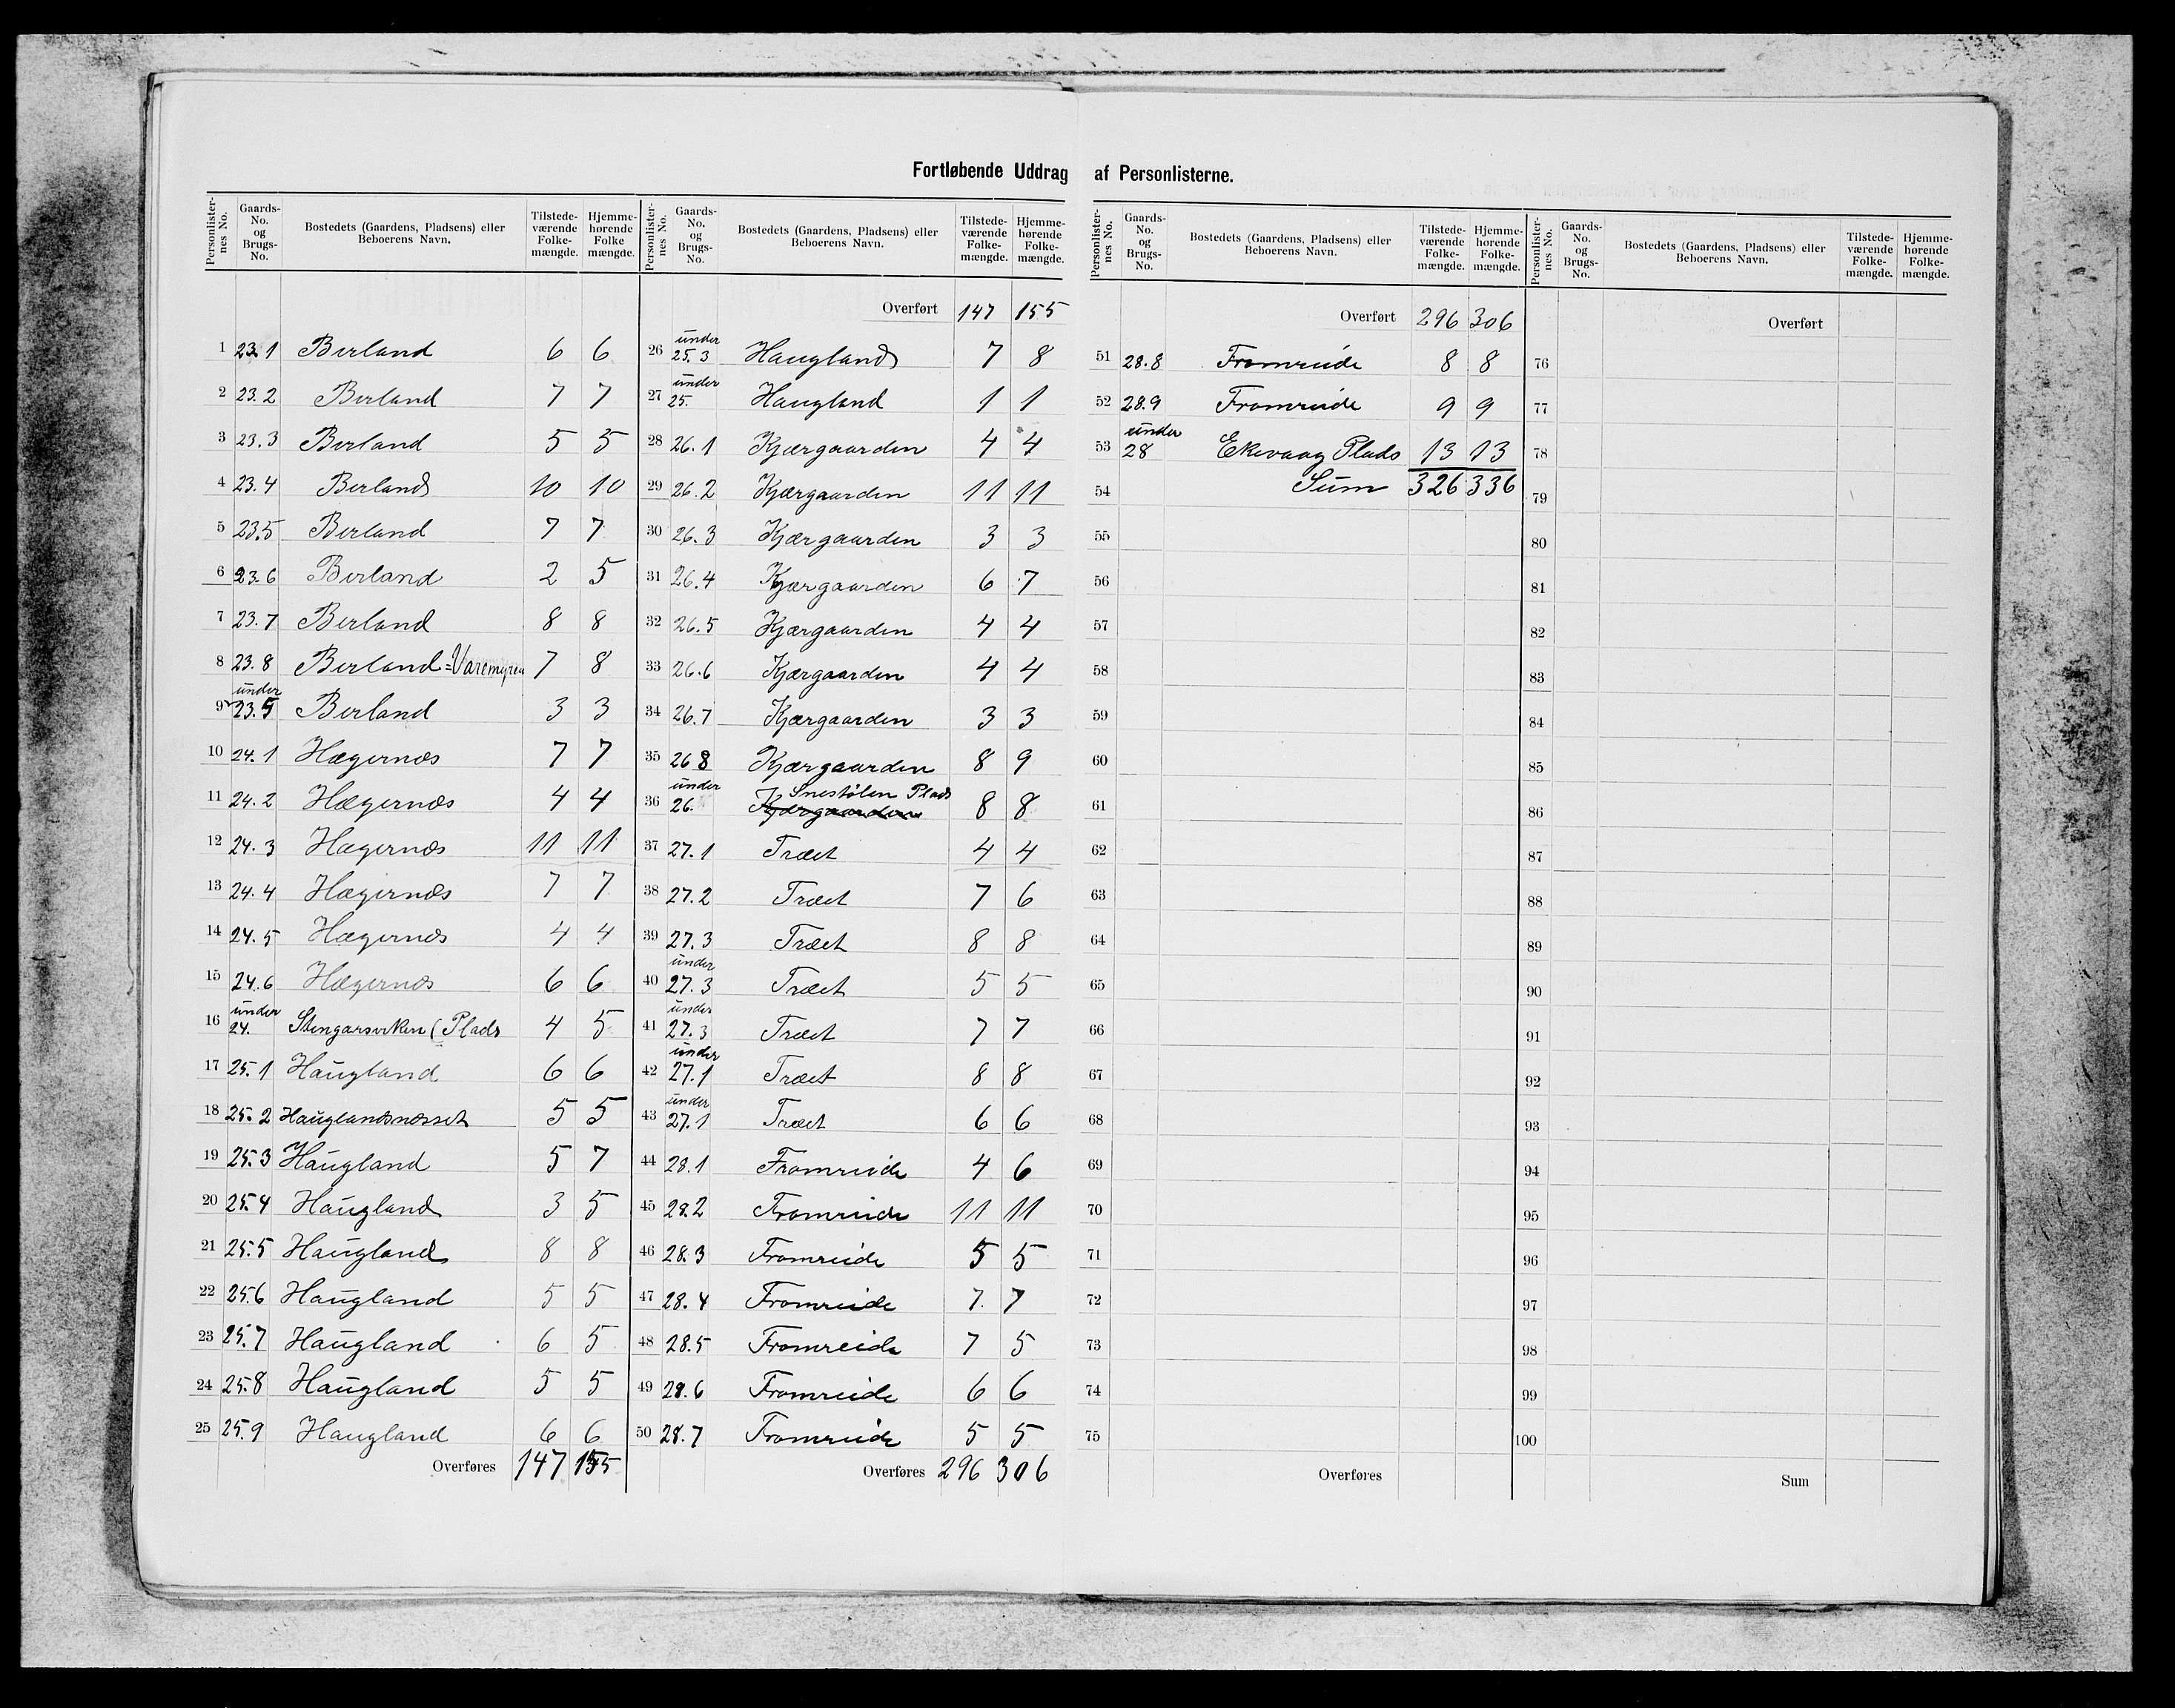 Fortløbende Uddrag af Personlisterne.
Personlisternes No. Gaards-No. og Brugs-No. Bostedets (Gaardens, Pladsens) eller Beboerens Navn. Tilstedeværende Folkemængde. Hjemmehørende Folkemængde.
1 23.1 Berland 6 6
2 23.2 Berland 7 7
3 23.3 Berland 5 5
4 23.4 Berland 10 10
5 23.5 Berland 7 7
6 23.6 Berland 2 5
7 23.7 Berland 8 8
8 23.8 Berland=Varemyren 7 8
9 under 23.5 Berland 3 3
10 24.1 Hægernæs 7 7
11 24.2 Hægernæs 4 4
12 24.3 Hægernæs 11 11
13 24.4 Hægernæs 7 7
14 24.5 Hægernæs 4 4
15 24.6 Hægernæs 6 6
16 under 24. (Plads 4 5
17 25.1 Haugland 6 6
18 25.2 Hauglandsnæsset 5 5
19 25.3 Haugland 5 7
20 25.4 Haugland 3 5
21 25.5 Haugland 8 8
22 25.6 Haugland 5 5
23 25.7 Haugland 6 5
24 25.8 Haugland 5 5
25 25.9 Haugland 6 6
Overføres 147 155
Personlisternes No. Gaards-No. og Brugs-No. Bostedets (Gaardens, Pladsens) eller Beboerens Navn. Tilstedeværende Folkemængde. Hjemmehørende Folkemængde.
Overført 147 155
26 under 25.3 Haugland 7 8
27 under 25. Haugland 1 1
28 26.1 Kjærgaarden 4 4
29 26.2 Kjærgaarden 11 11
30 26.3 Kjærgaarden 3 3
31 26.4 Kjærgaarden 6 7
32 26.5 Kjærgaarden 4 4
33 26.6 Kjærgaarden 4 4
34 26.7 Kjærgaarden 3 3
35 26 8 Kjærgaarden 8 9
36 under 26. Snestølen Plads Kjærgaarden 8 8
37 27.1 Træet 4 4
38 27.2 Træet 7 6
39 27.3 Træet 8 8
40 under 27.3 Træet 5 5
41 under 27.3 Træet 7 7
42 under 27.1 Træet 8 8
43 under 27.1 Træet 6 6
44 28.1 Fromreide 4 6
45 28.2 Fromreide 11 11
46 28.3 Fromreide 5 5
47 28.4 Fromreide 7. 7
48 28.5 Fromreide 7 5
49 28.6 Fromreide 6 6
50 28.7 Fromreide 5 5
Overføres 296 306
Personlisternes No. Gaards-No. og Brugs-No. Bostedets (Gaardens, Pladsens) eller Beboerens Navn. Tilstedeværende Folkemængde. Hjemmehørende Folkemængde.
Overført 296 306
51 28.8 Fromreide 8 8
52 28.9 Fromreide 9 9
53 under 28 Ekevaag Plads 13 13
54 Sum 326 336
55
56
57
58
59
60
61
62
63
64
65
66
67
68
69
70
71
72
73
74
75
Overføres
Personlisternes No. Gaards-No. og Brugs-No. Bostedets (Gaardens, Pladsens) eller Beboerens Navn. Tilstedeværende Folkemængde. Hjemmehørende Folkemængde.
Overført
76
77
78
79
80
81
82
83
84
85
86
87
88
89
90
91
92
93
94
95
96
97
98
99
100
Sum